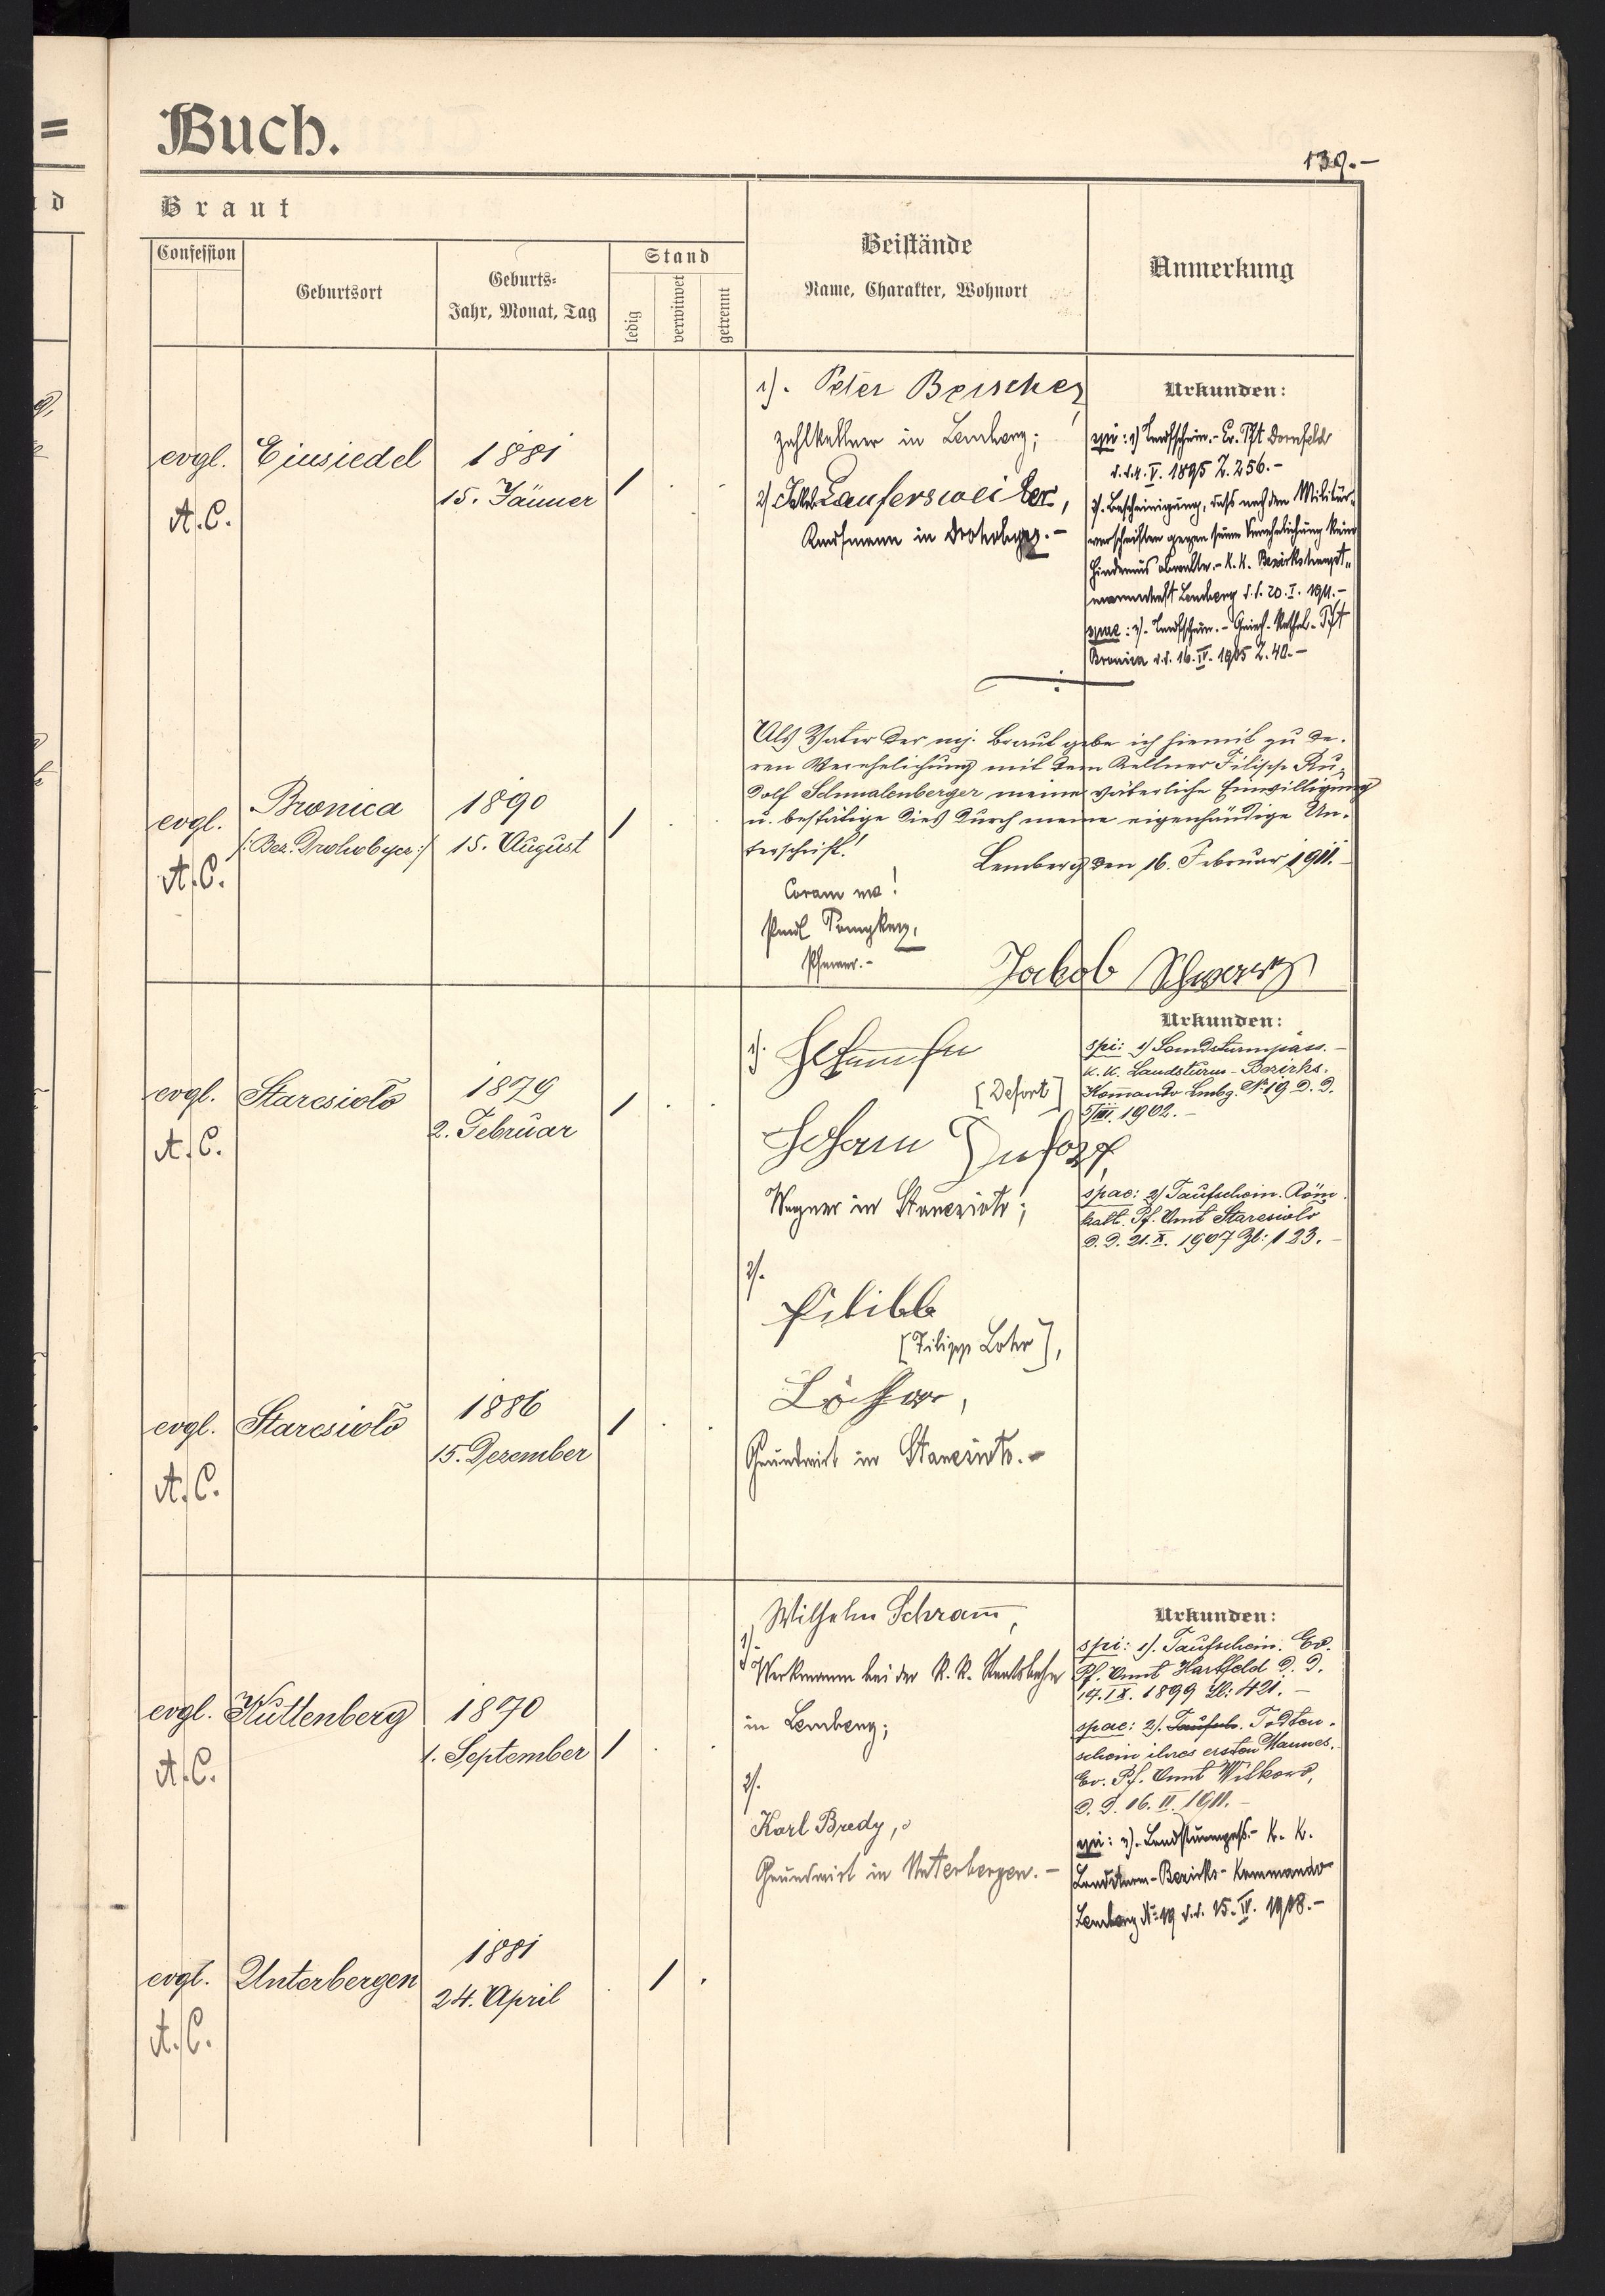 Buch.
139.-
Braut
Confession
Geburtsort
Geburts-
Jahr, Monat, Tag
Stand
ledig
verwitwet
getrennt
Beistände
Name, Charakter, Wohnort
Anmerkung
evgl.
A.C.
Einsiedel
1881
15. Jänner
1
1). Peter
Zahlkellner in Lemberg;
2) Laufersweiler,
Kaufmann in Drohobycz.-
Urkunden:
spi: 1) Taufschein.- Ev. Pft Dornfeld
V. 1895 Z. 256.-
2). Bescheinigung, daß nach den Militär-
vorschriften gegen seine Verehelichung keine
Hindernis obwalte.- K.K. Bezirkshaupt-
mannschaft Lemberg d.d. 20.I. 1911.-
spae: 3). Taufschein.- Griech.-Kathol.-Pft
Bronica d.d. 16.IV. 1905 Z. 40.-
evgl.
A.C.
Bronica
/:Bez. Drohobycz:/
1890
15. August
1
Als Vater der mj. Braut gebe ich hiemit zu de-
ren Verehelichung mit dem Kellner Filipp Ru-
dolf Schmalenberger meine väterliche Einwilligung
u. bestätige dies durch meine eigenhändige Un-
terschrift!
Lemberg den 16. Februar 1911.-
Coram me!
Paul
Pfarrer.-
Jakob Schwarz
evgl.
A.C.
Staresioło
1879
2. Februar
1
1).
[Defort]
Johann
Wagner in Staresioło;
2).
Filibb
[Filipp Lohr],
Grundwirt in Staresioło.-
Urkunden:
spi: 1) Landsturmpass.-
K.K. Landsturm-Bezirks-
Kommando Lmbg. No 19 d. d.
5/III. 1902.-
spae: 2) Taufschein. Röm.
kath. Pf. Amt Staresioło
d. d. 21. X. 1907 Zl: 123.-
evgl.
A.C.
Staresioło
1886
15. Dezember
1
evgl.
A.C.
Kuttenberg
1870
1. September
1
1). Wilhelm Schram,
Werkmann bei der K.K. Staatsbahn
in Lemberg;
2).
Karl Bredy,
Grundwirt in Unterbergen.-
Urkunden:
spi: 1). Taufschein. Ev.
Pf. Amt Hartfeld d. d.
14. IX. 1899 Zl: 421.-
spae: 2). Taufsch. Todten-
schein ihres ersten Mannes.
Ev. Pf. Amt
d. d. 16. II. 1911.-
spi: 3). Landsturmpaß.- K.K.
Landsturm-Bezirks-Kommando
Lemberg No 19 d.d. 15. IV. 1908.-
evgl.
A.C.
Unterbergen
1881
24. April
1